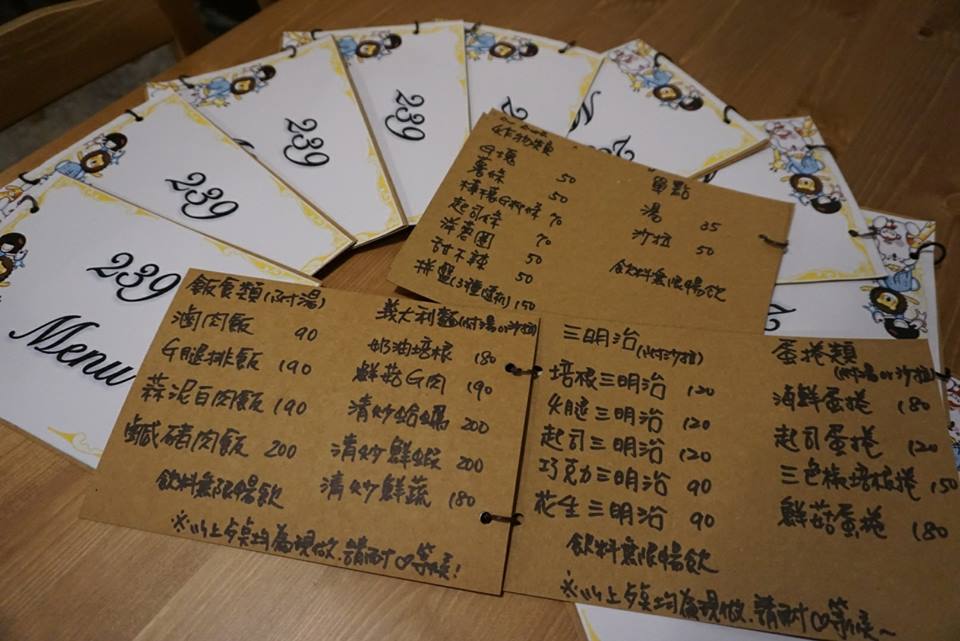 239
239
239
239
Menu
炸物類
G塊 50
薯條 50
檸檬G柳條 70
起司條 70
洋蔥圈 50
甜不辣 50
拼盤(3種選項) 150
單點
湯 35
沙拉 50
飲料無限暢飲
飯食類(附湯)
滷肉飯 90
G腿排飯 190
蒜泥白肉飯 190
鹹豬肉飯 200
飲料無限暢飲
義大利麵(附湯or沙拉)
奶油培根 180
鮮菇G肉 190
清炒蛤蠣 200
清炒鮮蝦 200
清炒鮮蔬 180
※以上餐點均為現做.請耐心等候!
三明治(附沙拉)
培根三明治 120
火腿三明治 120
起司三明治 120
巧克力三明治 90
花生三明治 90
飲料無限暢飲
蛋捲類
(附湯or沙拉)
海鮮蛋捲 180
起司蛋捲 120
三色椒培根捲 150
鮮菇蛋捲 180
※以上餐點均為現做.請耐心等候~